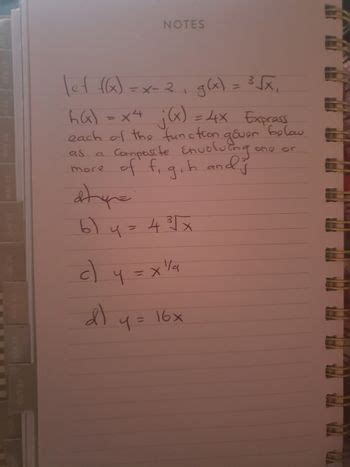 NOTES
let f(x) = x - 2, g(x) = ³√x,
h(x) = x⁴ j(x) = 4x Express
each of the function given below
as a Composite Envolving one or
more of f, g, h and j
b) y = 4 ³√x
c) y = x^1/9
d) y = 16x